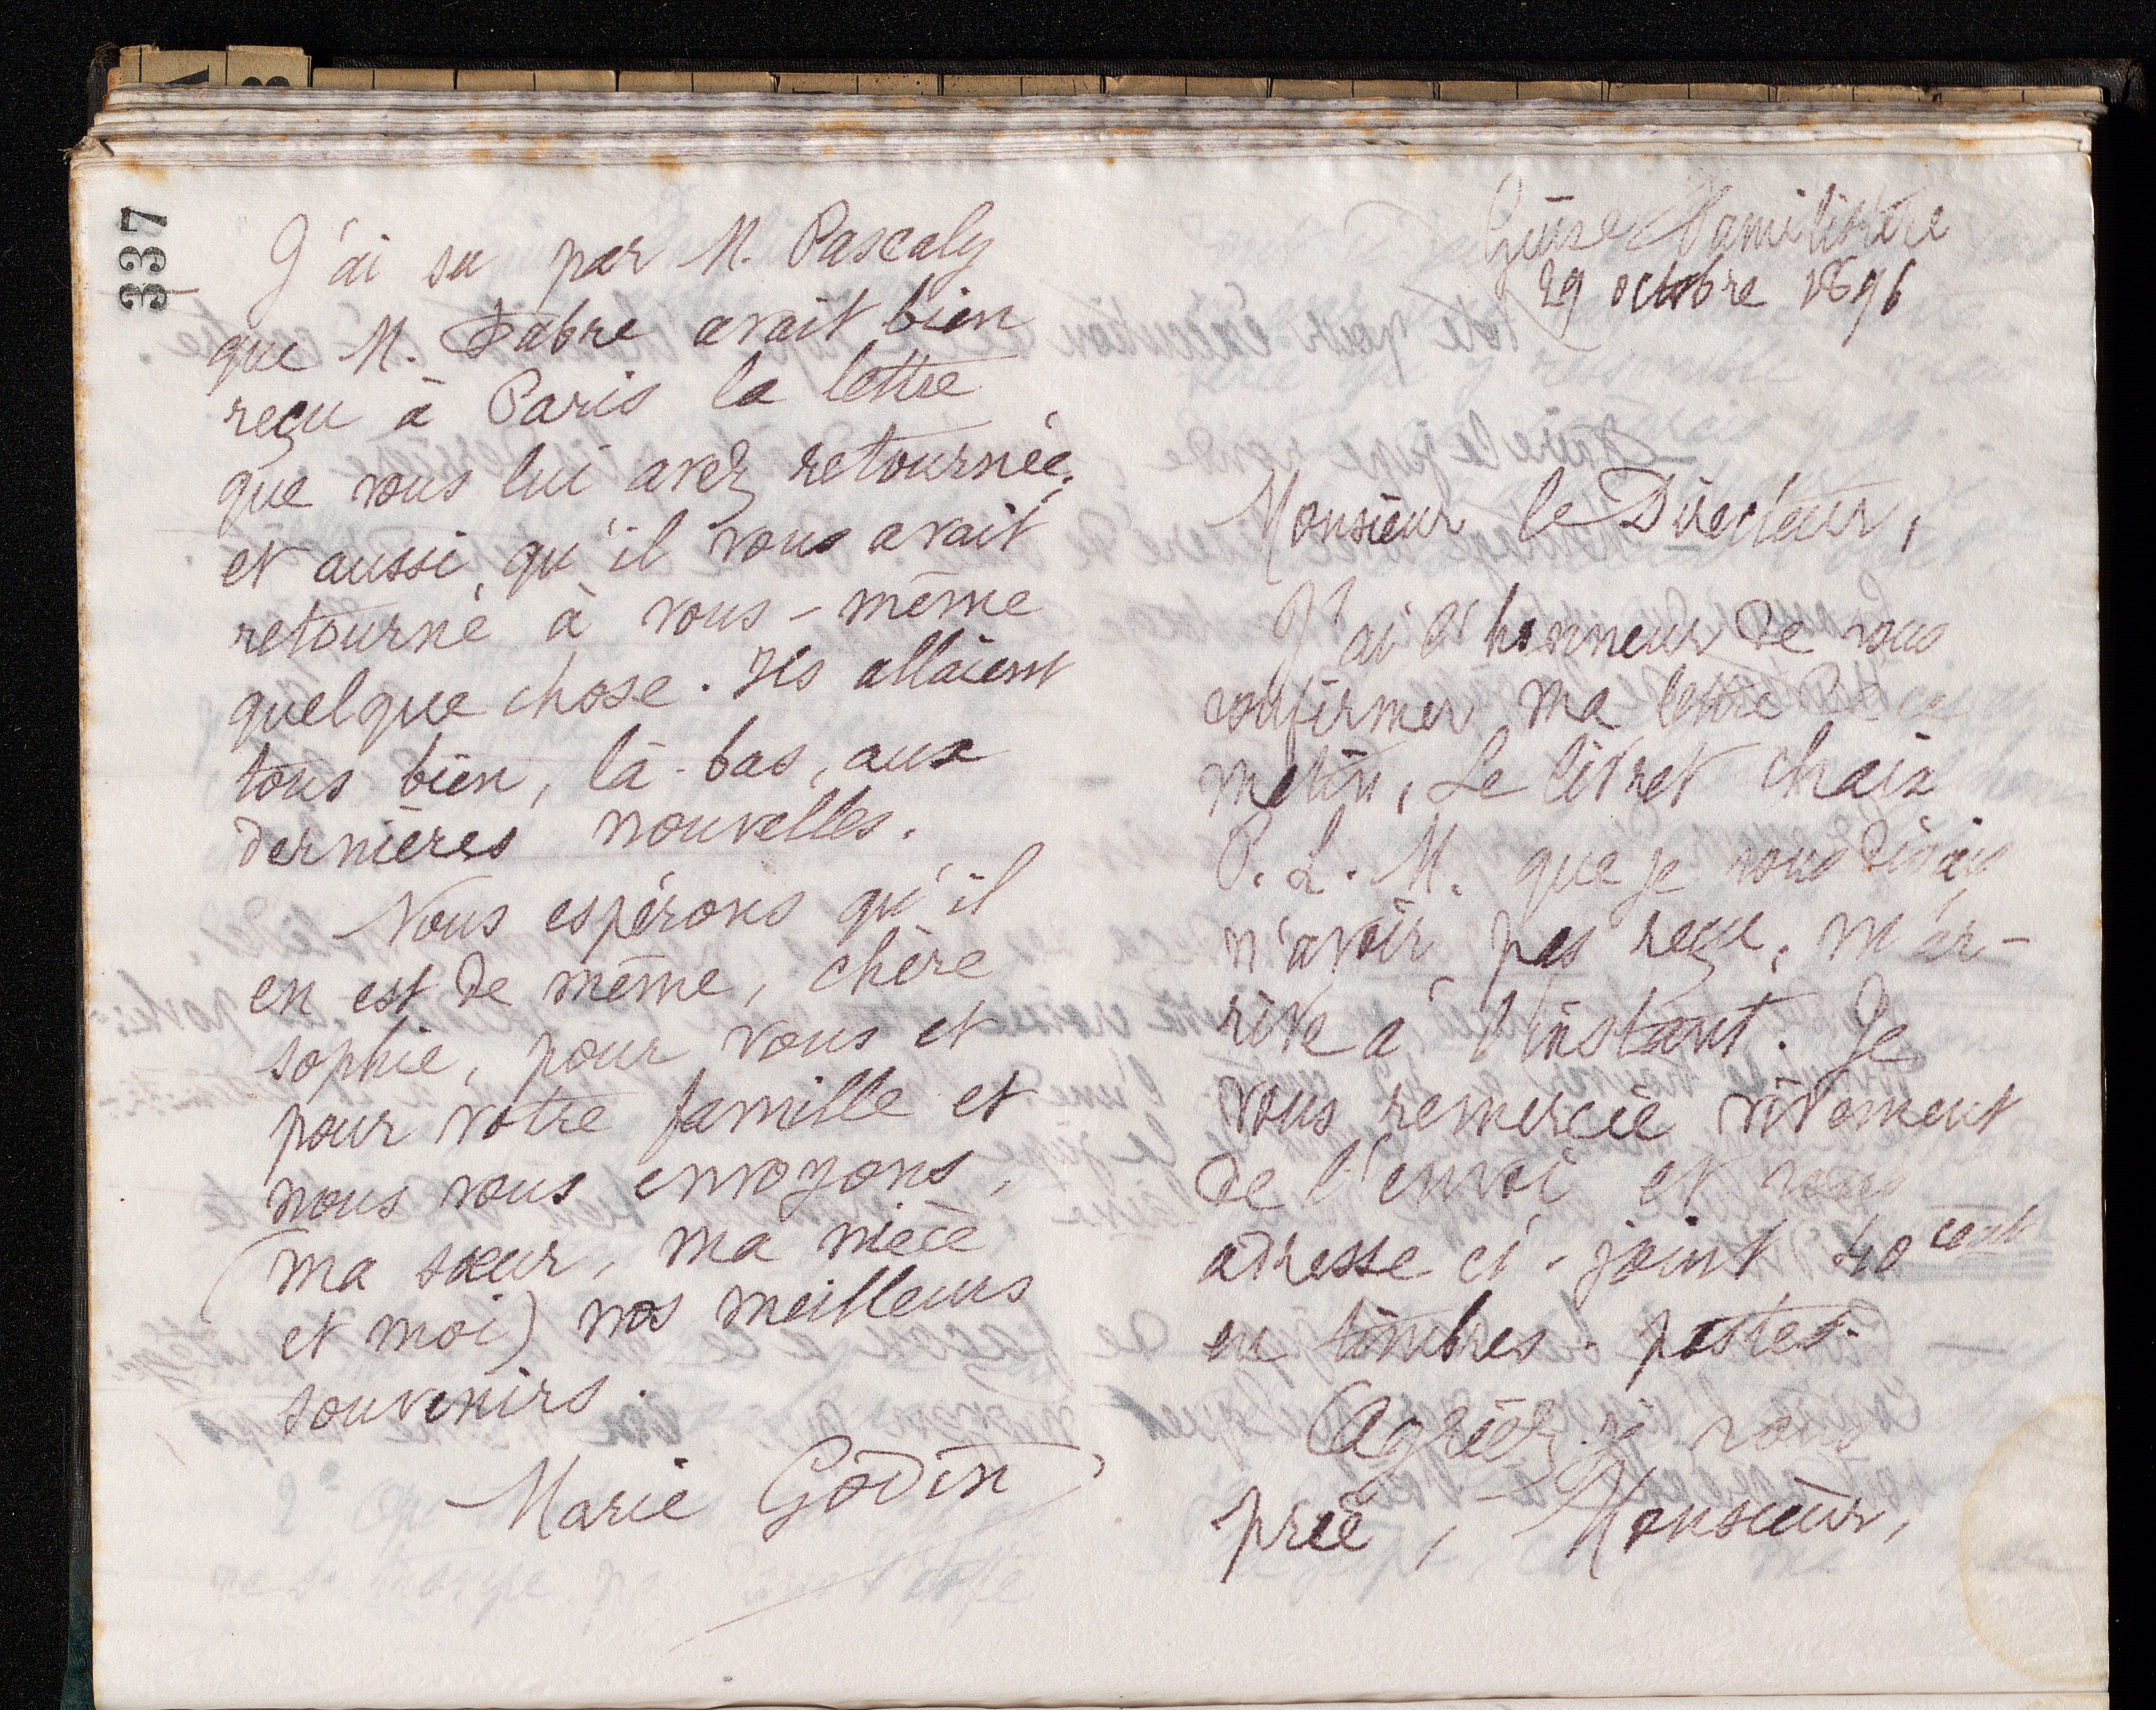 337
J'ai su par M. Pascaly
que M. Fabre avait bien
reçu à Paris la lettre
que vous lui avez retournée,
et aussi, qu'il vous avait
retourné à vous-même
quelque chose. Ils allaient
tous bien, là-bas, aux
dernières nouvelles.
Nous espérons qu'il
en est de même, chère
sophie, pour vous et
pour votre famille et
nous vous envoyons,
(ma sœur, ma nièce
et moi) nos meilleurs
souvenirs.
Marie Godin
Guise Familistère
29 octobre 1896
Monsieur le Directeur,
J'ai l'honneur de vous
confirmer ma lettre de ce
matin, Le livret Chaix
P. L. M. que je vous disais
n'avoir pas reçu, m'ar-
rive à l'instant. Je
vous remercie vivement
de l'envoi et vous
adresse ci-joint 40 cent
en timbres-postes.
Agréez, je vous
prie, Monsieur,